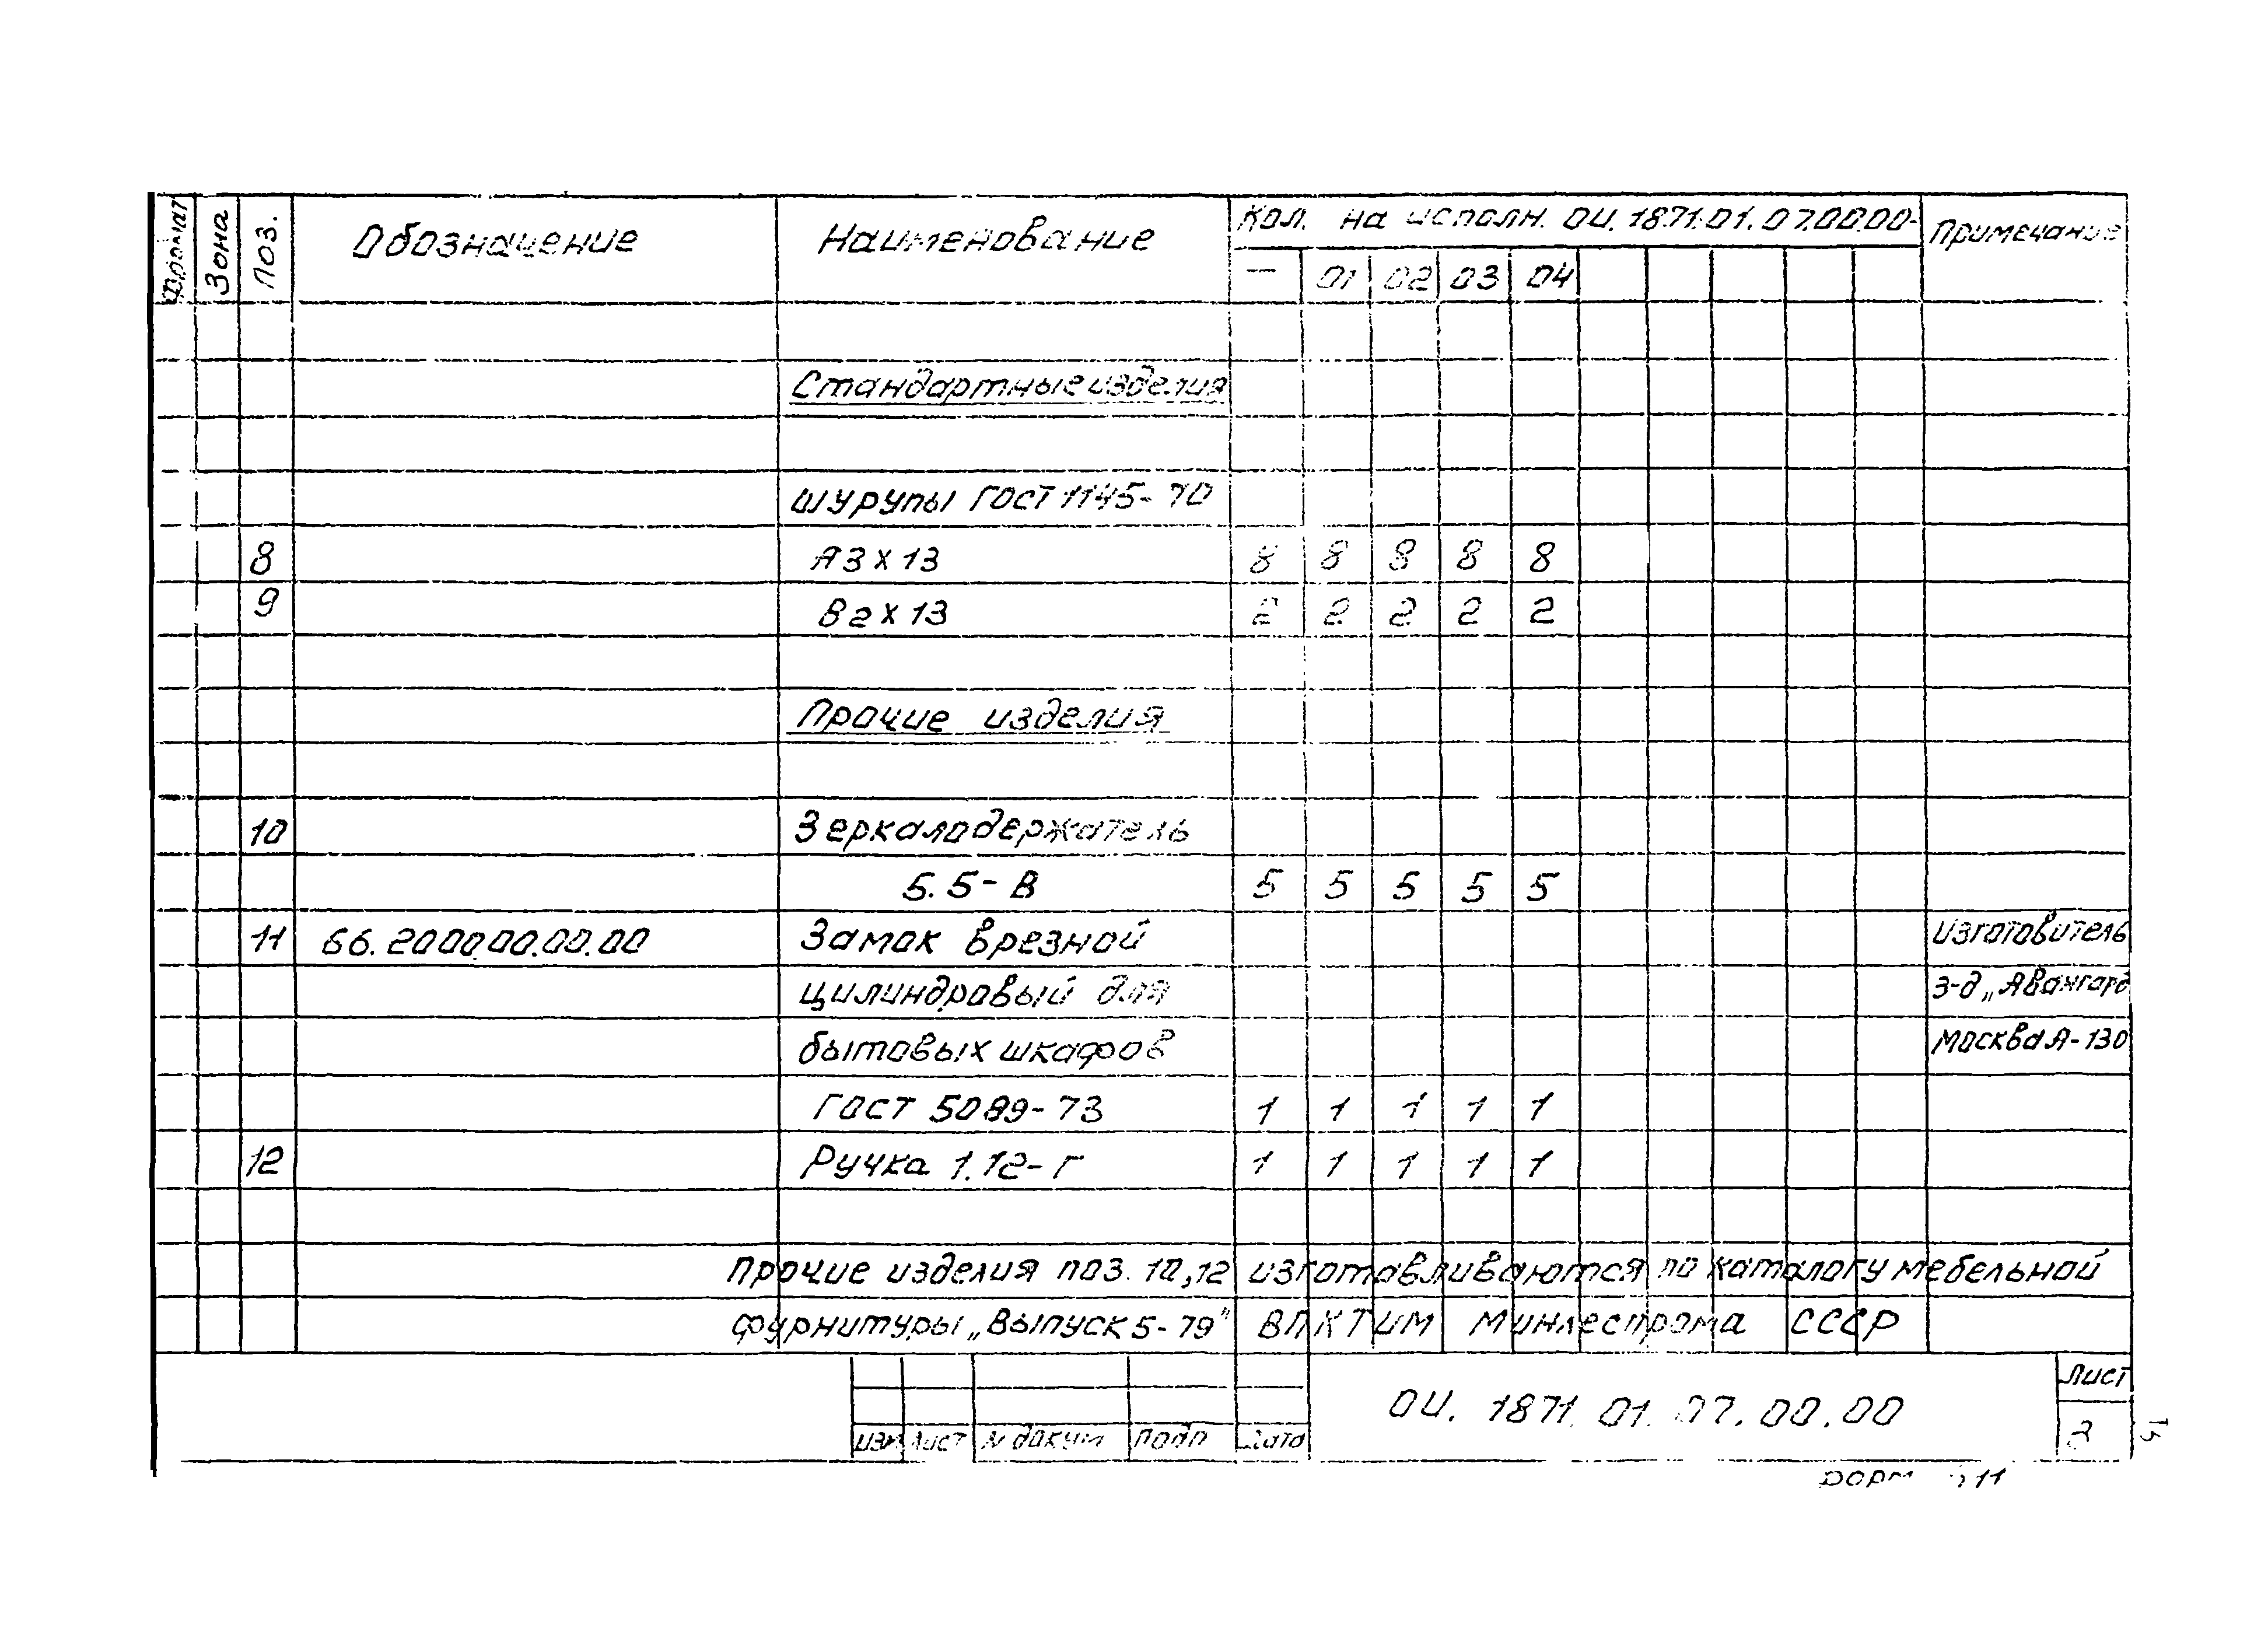 Формат Зона Поз. Обозначение Наименование Кол. на исполн. ОИ.1871.01.07.00.00- Примечание
— 01 02 03 04
Стандартные изделия
Шурупы ГОСТ 1145-70
8 А3х13 8 8 8 8 8
9 В2х13 2 2 2 2 2
Прочие изделия
10 Зеркалодержатель
5.5-В 5 5 5 5 5
11 66.2000.00.00.00 Замок врезной Изготовитель
цилиндровый для з-д „Авангард
бытовых шкафов Москва А-130
ГОСТ 5089-73 1 1 1 1 1
12 Ручка 1.12-Г 1 1 1 1 1
Прочие изделия поз. 10,12 изготавливаются по каталогу мебельной
фурнитуры „Выпуск 5-79" ВПКТИМ Минлеспрома СССР
ОИ. 1871.01.07.00.00 Лист
Изм Лист № докум Подп Дата 2